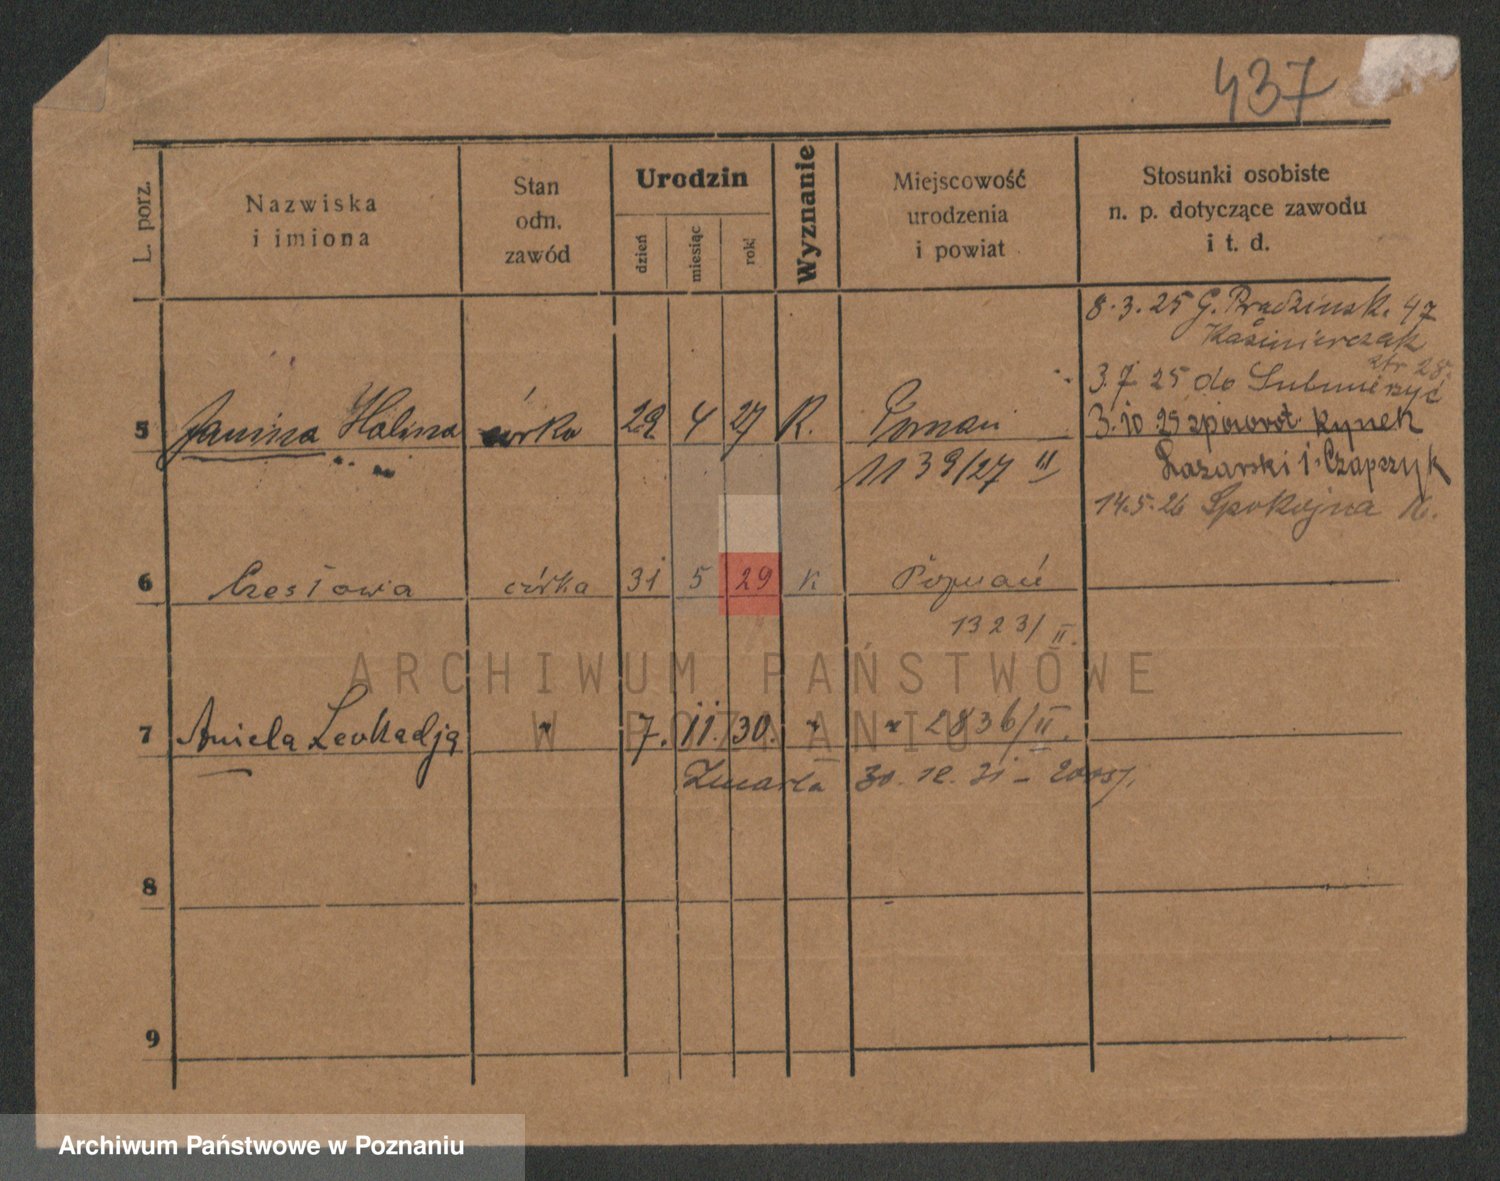 437
L. porz.
Nazwiska
i imiona
Stan
odn.
zawód
Urodzin
dzień
miesiąc
rok
Wyznanie
Miejscowość
urodzenia
i powiat
Stosunki osobiste
n. p. dotyczące zawodu
i t. d.
8.3.25 G. Pradzinsk. 47
Kaźmierczak
str 28.
3.7 25 do
5 Janina Halina córka 22 4 27 R. Poznań
3.10 25 spowrot Rynek
1139/27 II
Łazarski 1 Czapszyk
14.5.26 Spokojna
6 Czesława córka 31 5 29 k Poznań
1323/II.
ARCHIWUM PAŃSTWOWE
W POZNANIU
7 Aniela Leokadja " 7. 11. 30. " " 2836/II.
Zmarła 30. 12. 31 -
8
9
Archiwum Państwowe w Poznaniu